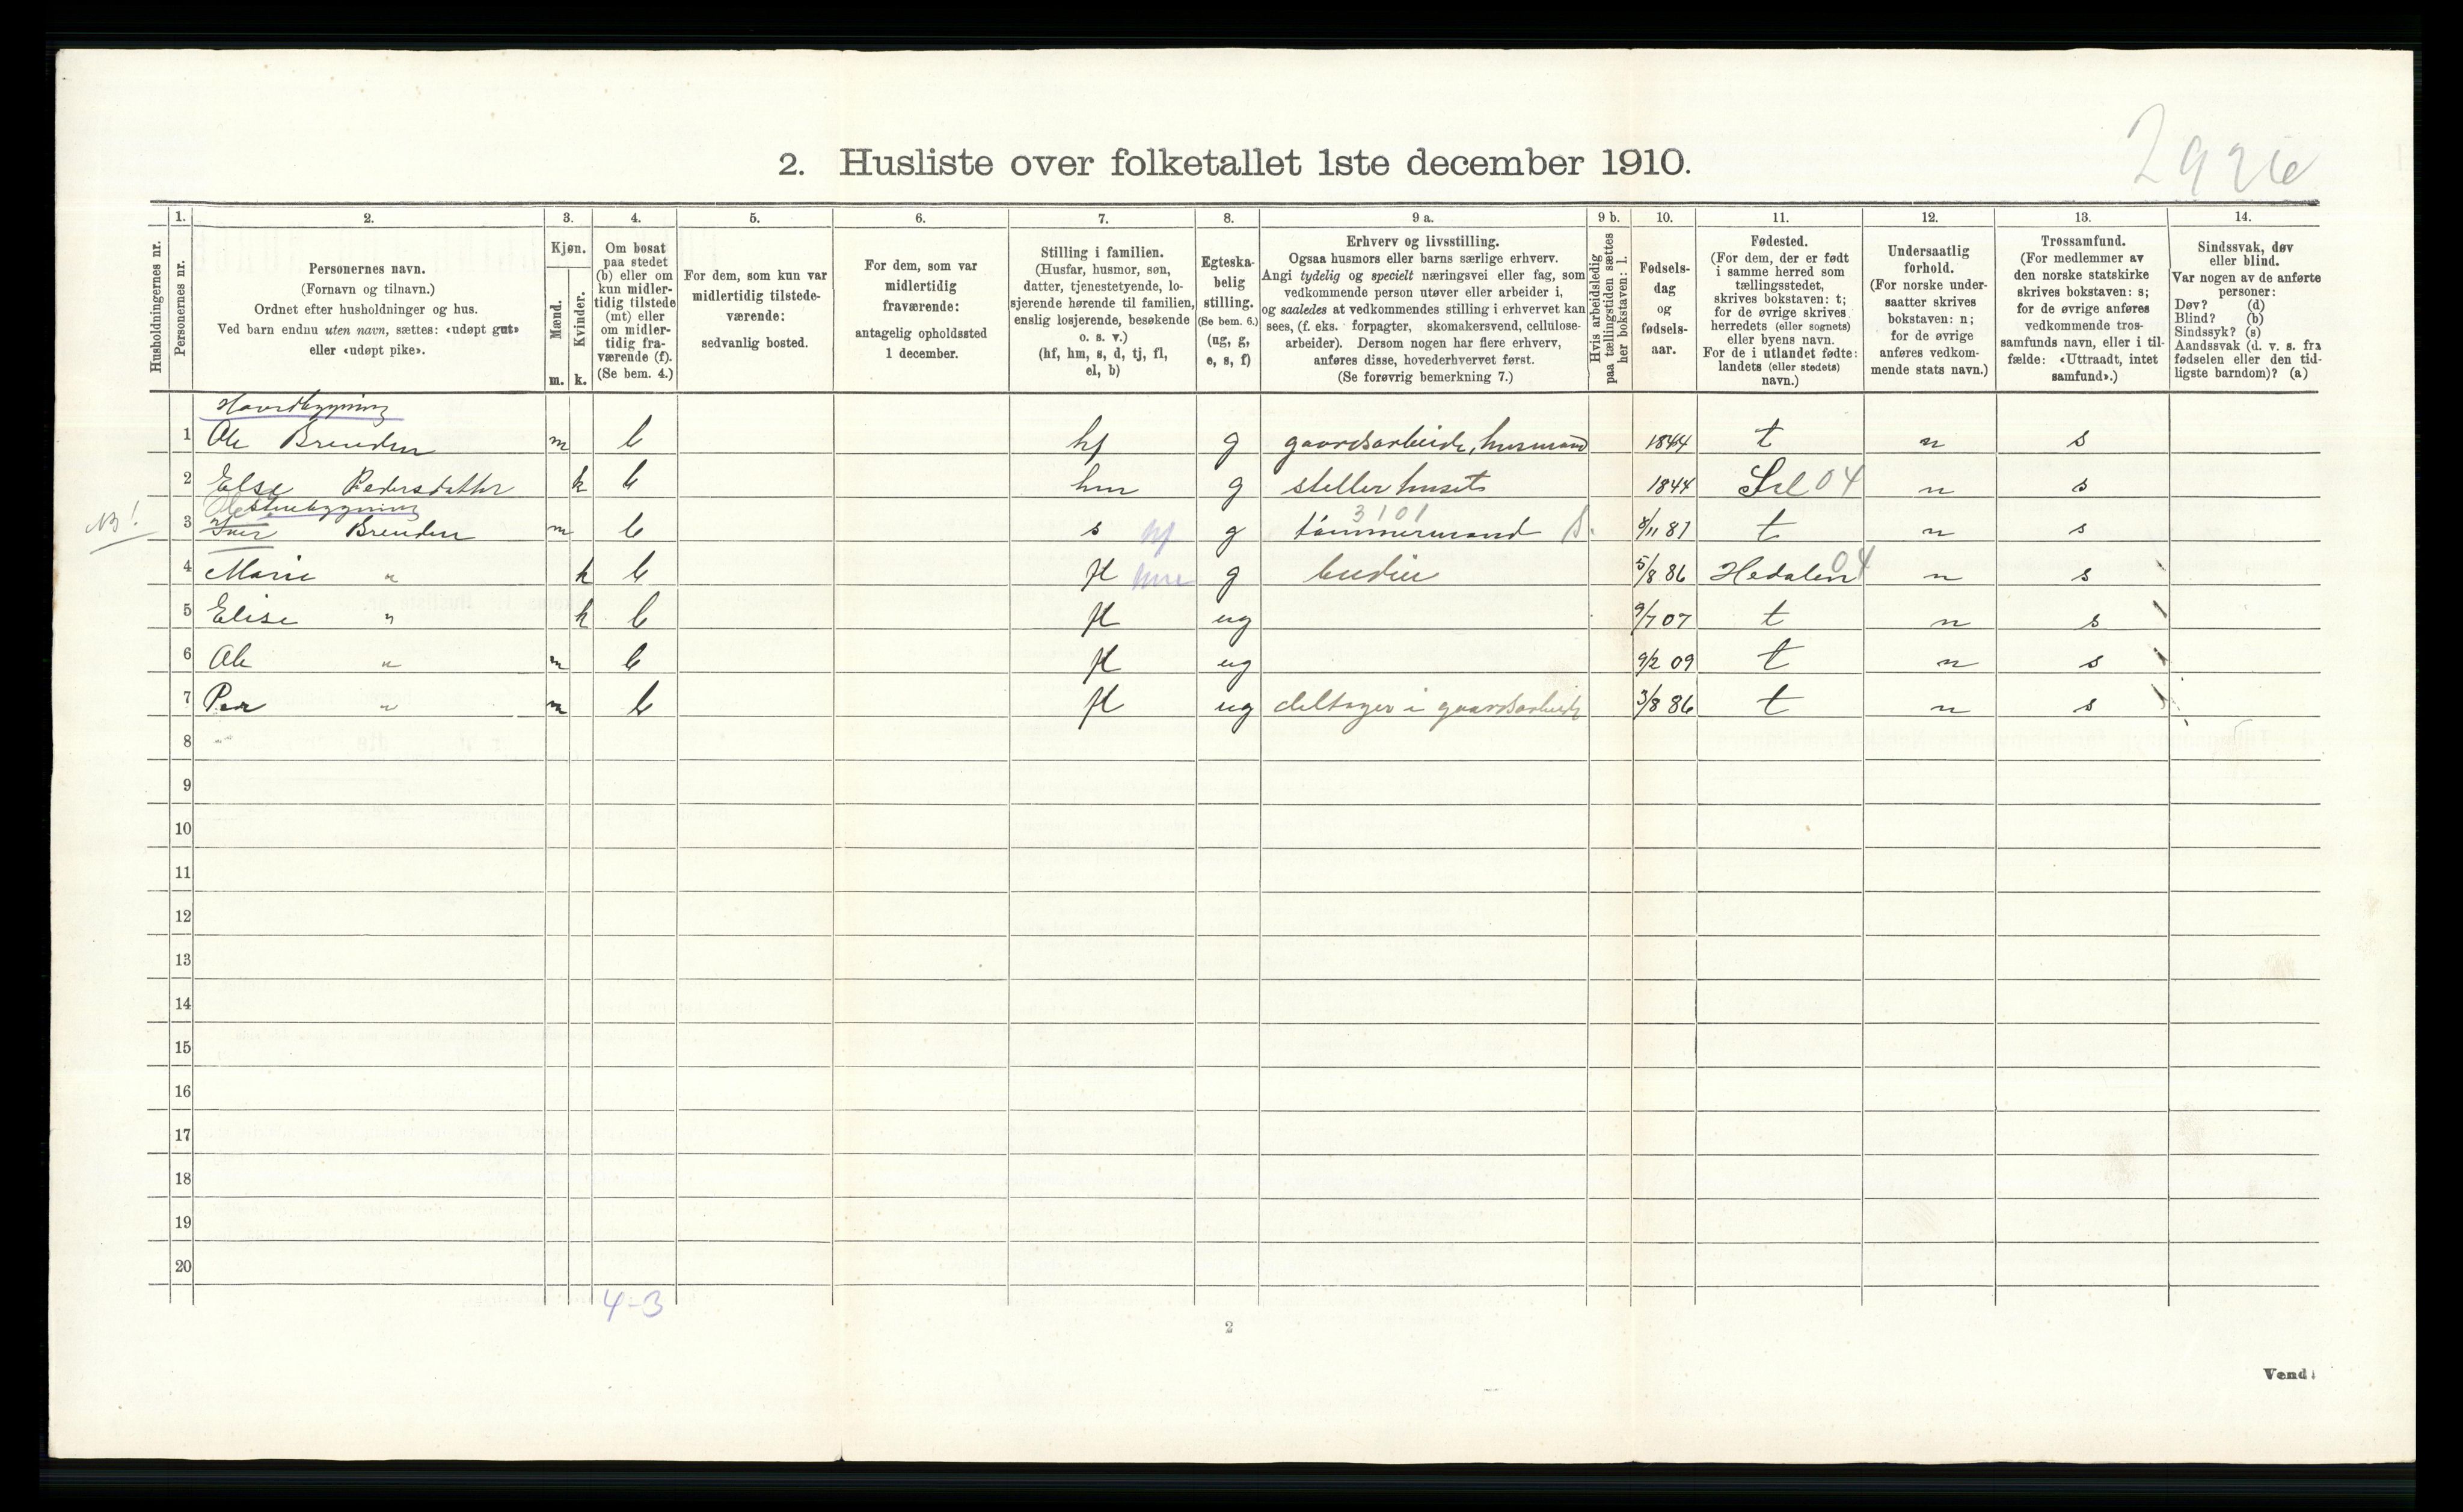 2. Husliste over folketallet 1ste december 1910.
1. 2. 3. 4. 5. 6. 7. 8. 9 a. 9 b. 10. 11. 12. 13. 14.
Husholdningernes nr.
Personernes nr.
Personernes navn.
(Fornavn og tilnavn.)
Ordnet efter husholdninger og hus.
Ved barn endnu uten navn, sættes: «udøpt gut»
eller «udøpt pike».
Kjøn.
Mænd.
Kvinder.
m. k.
Om bosat
paa stedet
(b) eller om
kun midler-
tidig tilstede
(mt) eller
om midler-
tidig fra-
værende (f).
(Se bem. 4.)
For dem, som kun var
midlertidig tilstede-
værende:
sedvanlig bosted.
For dem, som var
midlertidig
fraværende:
antagelig opholdssted
1 december.
Stilling i familien.
(Husfar, husmor, søn,
datter, tjenestetyende, lo-
sjerende hørende til familien,
enslig losjerende, besøkende
o. s. v.)
(hf, hm, s, d, tj, fl,
el, b)
Egteska-
belig
stilling.
(Se bem. 6.)
(ug, g,
e, s, f)
Erhverv og livsstilling.
Ogsaa husmors eller barns særlige erhverv.
Angi tydelig og specielt næringsvei eller fag, som
vedkommende person utøver eller arbeider i,
og saaledes at vedkommendes stilling i erhvervet kan
sees, (f. eks. forpagter, skomakersvend, cellulose-
arbeider). Dersom nogen har flere erhverv,
anføres disse, hovederhvervet først.
(Se forøvrig bemerkning 7.)
Hvis arbeidsledig
paa tællingstiden sættes
her bokstaven: l.
Fødsels-
dag
og
fødsels-
aar.
Fødested.
(For dem, der er født
i samme herred som
tællingsstedet,
skrives bokstaven: t;
for de øvrige skrives
herredets (eller sognets)
eller byens navn.
For de i utlandet fødte:
landets (eller stedets)
navn.)
Undersaatlig
forhold.
(For norske under-
saatter skrives
bokstaven: n;
for de øvrige
anføres vedkom-
mende stats navn.)
Trossamfund.
(For medlemmer av
den norske statskirke
skrives bokstaven: s;
for de øvrige anføres
vedkommende tros-
samfunds navn, eller i til-
fælde: «Uttraadt, intet
samfund».)
Sindssvak, døv
eller blind.
Var nogen av de anførte
personer:
Døv? (d)
Blind? (b)
Sindssyk? (s)
Aandssvak (d. v. s. fra
fødselen eller den tid-
ligste barndom)? (a)
Hovedbygning
1 Ole Brenden m b hf g gaardsarbeide, husmand 1844 t n s
2 Else Pedersdatter k b hm g steller huset 1844 Sel 04 n s
Ole Stuebygning 3101
NB! 3 Iver Brenden m b s hf g tømmermand 8/11 81 t n s
4 Marie " k b fl hm g budeie 5/8 86 Hedalen 04 n s
5 Elise " k b fl ug 9/7 07 t n s
6 Ole " m b fl ug 9/2 09 t n s
7 Per " m b fl ug deltager i gaardsarbeide 3/8 86 t n s
8
9
10
11
12
13
14
15
16
17
18
19
20
4-3
2
Vend!